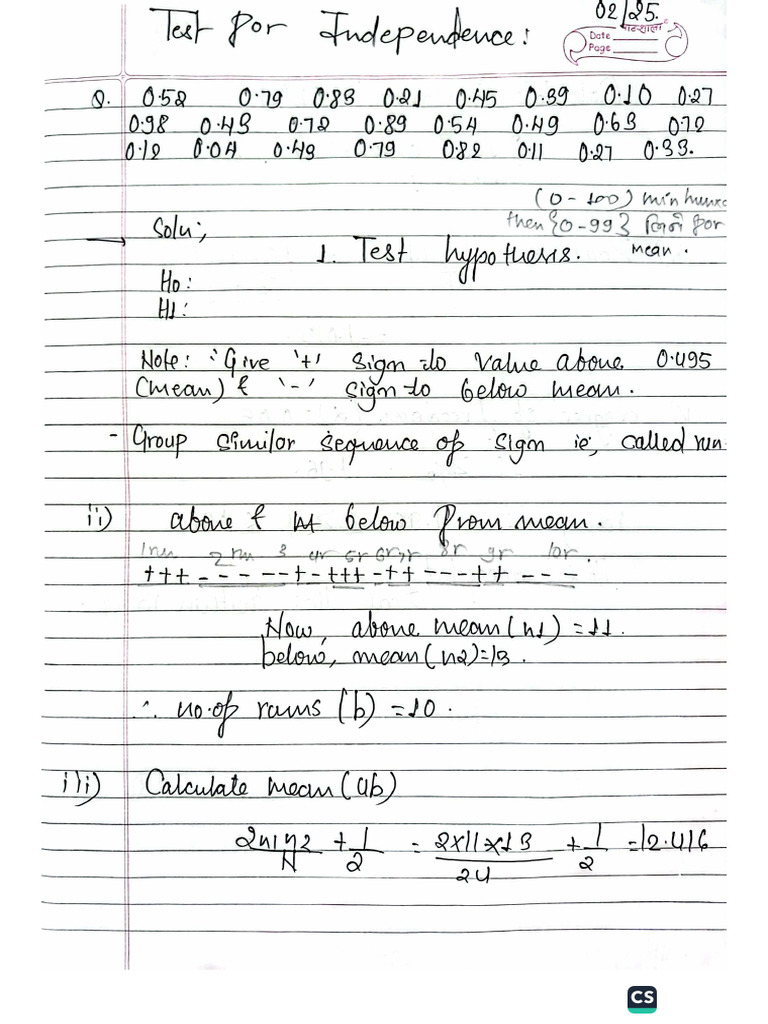 Test for Independence:
02/25.
पाठशाला
Date
Page
Q. 0.52 0.79 0.83 0.21 0.45 0.39 0.10 0.27
0.98 0.43 0.72 0.89 0.54 0.49 0.63 0.72
0.12 0.04 0.49 0.79 0.82 0.11 0.27 0.33.
(0-100)
then {0-99} for
mean.
Soln;
1. Test hypothesis.
Ho:
H1:
Note: Give '+' sign to value above 0.495
(mean) & '-' sign to below mean.
- Group similar sequence of sign ie, called run
ii) above & below from mean.
+++ - - - - - + - +++ - ++ - - - ++ - - -
Now, above mean(n1) = 11.
below, mean(n2)=13.
∴ no.of rums (b) = 10.
iii) Calculate mean (ub)
2n1n2/N + 1/2 = 2x11x13/24 + 1/2 = 12.416
CS